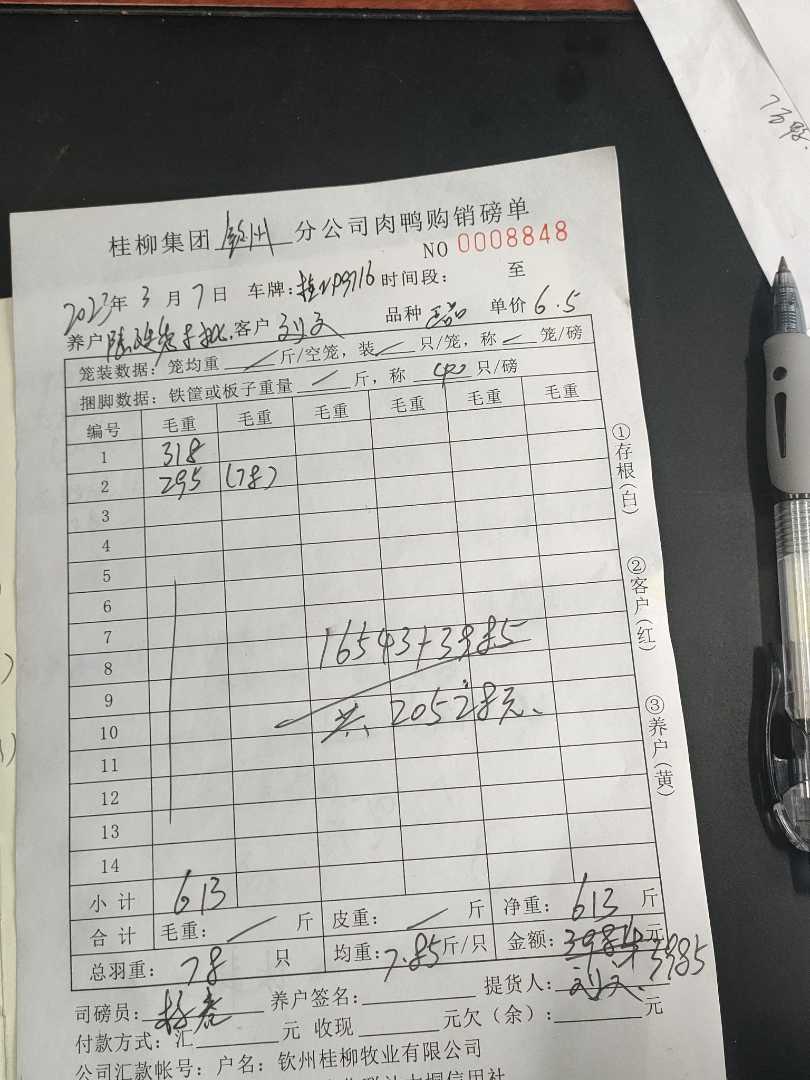 桂柳集团 钦州 分公司肉鸭购销磅单
NO 0008848
2023年 3 月 7 日 车牌: 时间段: 至
养户 客户 刘文 品种 单价 6.5
笼装数据: 笼均重 / 斤/空笼, 装 / 只/笼, 称 / 笼/磅
捆脚数据: 铁筐或板子重量 / 斤, 称 40 只/磅
编号 毛重 毛重 毛重 毛重 毛重 毛重
1 318
2 295 (78)
3
4
5
6
7
8
9
10
11
12
13
14
16543+3985
共、20528元、
小计 613
合计 毛重: / 斤 皮重: / 斤 净重: 613 斤
总羽重: 78 只 均重: 7.85 斤/只 金额: 3984 元 3985
司磅员: 养户签名: 提货人: 刘文
付款方式: 汇 元 收现 元欠(余): 元
公司汇款帐号: 户名: 钦州桂柳牧业有限公司
①存根(白)
②客户(红)
③养户(黄)